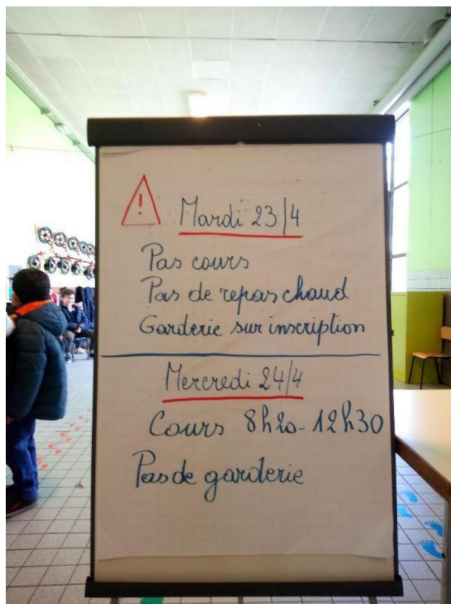 Mardi 23/4
Pas cours
Pas de repas chaud
Garderie sur inscription
Mercredi 24/4
Cours 8h20-12h30
Pas de garderie